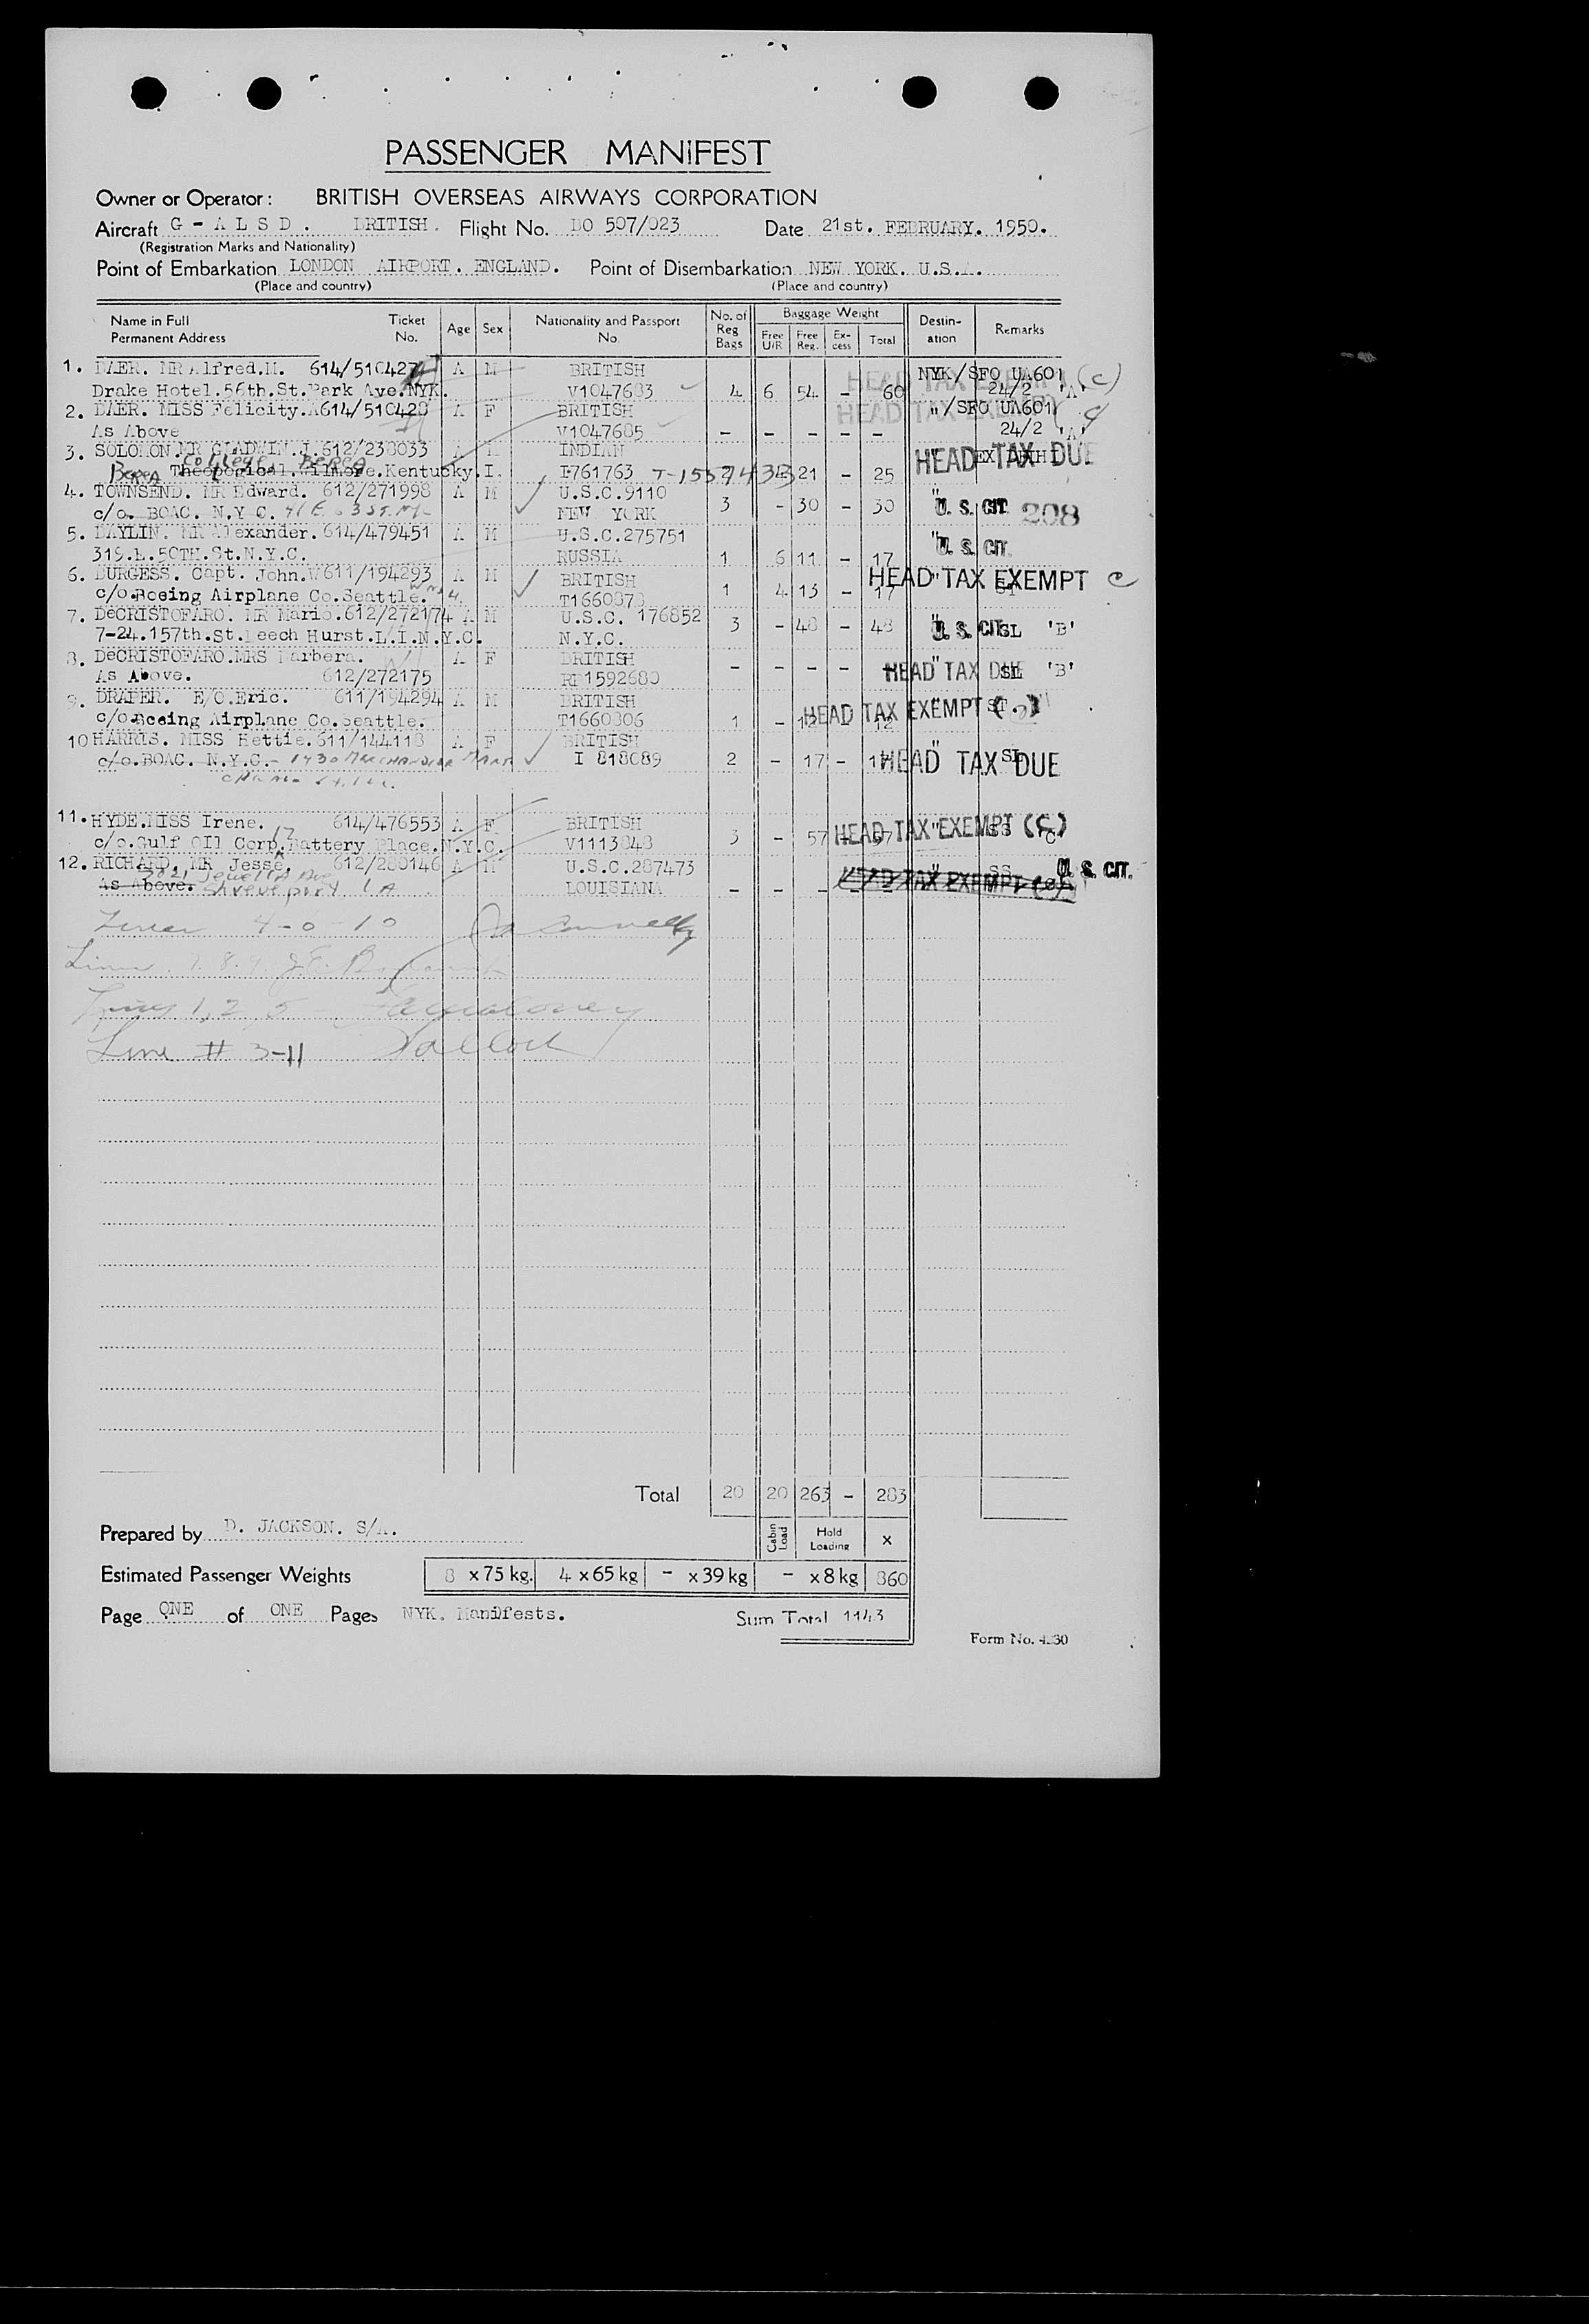 PASSENGER MANIFEST
Owner or Operator: BRITISH OVERSEAS AIRWAYS CORPORATION
Aircraft G - A L S D . BRITISH. Flight No. BO 507/023 Date 21st. FEBRUARY. 1950.
(Registration Marks and Nationality)
Point of Embarkation LONDON AIRPORT. ENGLAND. Point of Disembarkation NEW YORK. U.S.A.
(Place and country) (Place and country)
Name in Full Permanent Address Ticket No. Age Sex Nationality and Passport No. No. of Reg Bags Baggage Weight Free U/R Free Reg. Ex-cess Total Destin-ation Remarks
1. BAER. MR Alfred.M. 614/510427 A M BRITISH NYK/SFO UA601 (C)
Drake Hotel.56th.St.Park Ave.NYK. V1047683 4 6 54 - 60 HEAD TAX EXEMPT 24/2 'A'
2. BAER. MISS Felicity.A 614/510428 A F BRITISH HEAD TAX EXEMPT "/SFO UA601
As Above V1047685 - - - - - 24/2 'A'
3. SOLOMON MR GLADWIN.J.612/238033 A M INDIAN HEAD TAX DUE
College Berea
Berea Theological.Wilmore.Kentucky.I. 761763 T-1557433 21 - 25
4. TOWNSEND. MR Edward. 612/271998 A M U.S.C.9110
c/o. BOAC. N.Y.C. NEW YORK 3 - 30 - 30 " U. S. CIT. 208
5. BAYLIN. MR Alexander. 614/479451 A M U.S.C.275751 " U. S. CIT.
319.E.50TH.St.N.Y.C. RUSSIA 1 6 11 - 17
6. BURGESS. Capt. John.W 611/194293 A M BRITISH HEAD " TAX EXEMPT C
c/o.Boeing Airplane Co.Seattle. T1660878 1 4 13 - 17
7. DeCRISTOFARO. MR Mario.612/272174 A M U.S.C. 176852
7-24.157th.St.Beech Hurst.L.I.N.Y.C. N.Y.C. 3 - 48 - 48 " U. S. CIT. SL 'B'
8. DeCRISTOFARO.MRS Barbera. A F BRITISH
As Above. 612/272175 RP1592680 - - - - HEAD " TAX DUE SL 'B'
9. DRAPER. E/O.Eric. 611/194294 A M BRITISH HEAD TAX EXEMPT
c/o.Boeing Airplane Co.Seattle. T1660806 1 - 12 - 12
10 HARRIS. MISS Hettie.611/144118 A F BRITISH
c/o.BOAC. N.Y.C.- 1430 Merchandise Mart I 818089 2 - 17 - 17 HEAD " TAX DUE SL
11. HYDE.MISS Irene. 614/476553 A F BRITISH
17
c/o.Gulf OIl Corp.Battery Place.N.Y.C. V1113848 3 - 57 - 57 HEAD TAX " EXEMPT (C) SS C
12. RICHARD. MR Jesse. 612/280146 A M U.S.C.287473 " SS U. S. CIT.
As Above. Shreveport LA LOUISIANA - - - HEAD TAX EXEMPT
4 - 6 - 10
7. 8. 9.
Lines 1, 2, 5
Line # 3-11
Total 20 20 263 - 283
Prepared by D. JACKSON. S/A. Cabin Load Hold Loading X
Estimated Passenger Weights 8 x 75 kg. 4 x 65 kg - x 39 kg - x 8 kg 860
Page ONE of ONE Pages NYK. Manifests. Sum Total 1143
Form No. 4230